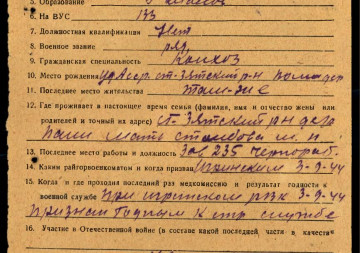 5. Образование
6. На ВУС 133
7. Должностная квалификация Нет
8. Военное звание ряд.
9. Гражданская специальность Колхоз
10. Место рождения УдАсср. ст-Зятский р-н
11. Последнее место жительства там-же
12. Где проживает в настоящее время семья (фамилия, имя и отчество жены или
родителей и точный их адрес) ст. Зятский р-н
мать
13. Последнее место работы и должность 235
14. Каким райгорвоенкоматом и когда призван Игринским 3-9-44
15. Когда и где проходил последний раз медкомиссию и результат годности к
военной службе при игринском рвк 3-9-44
признан годным к стр службе
16. Участие в Отечественной войне (в составе какой последней, части в качеств